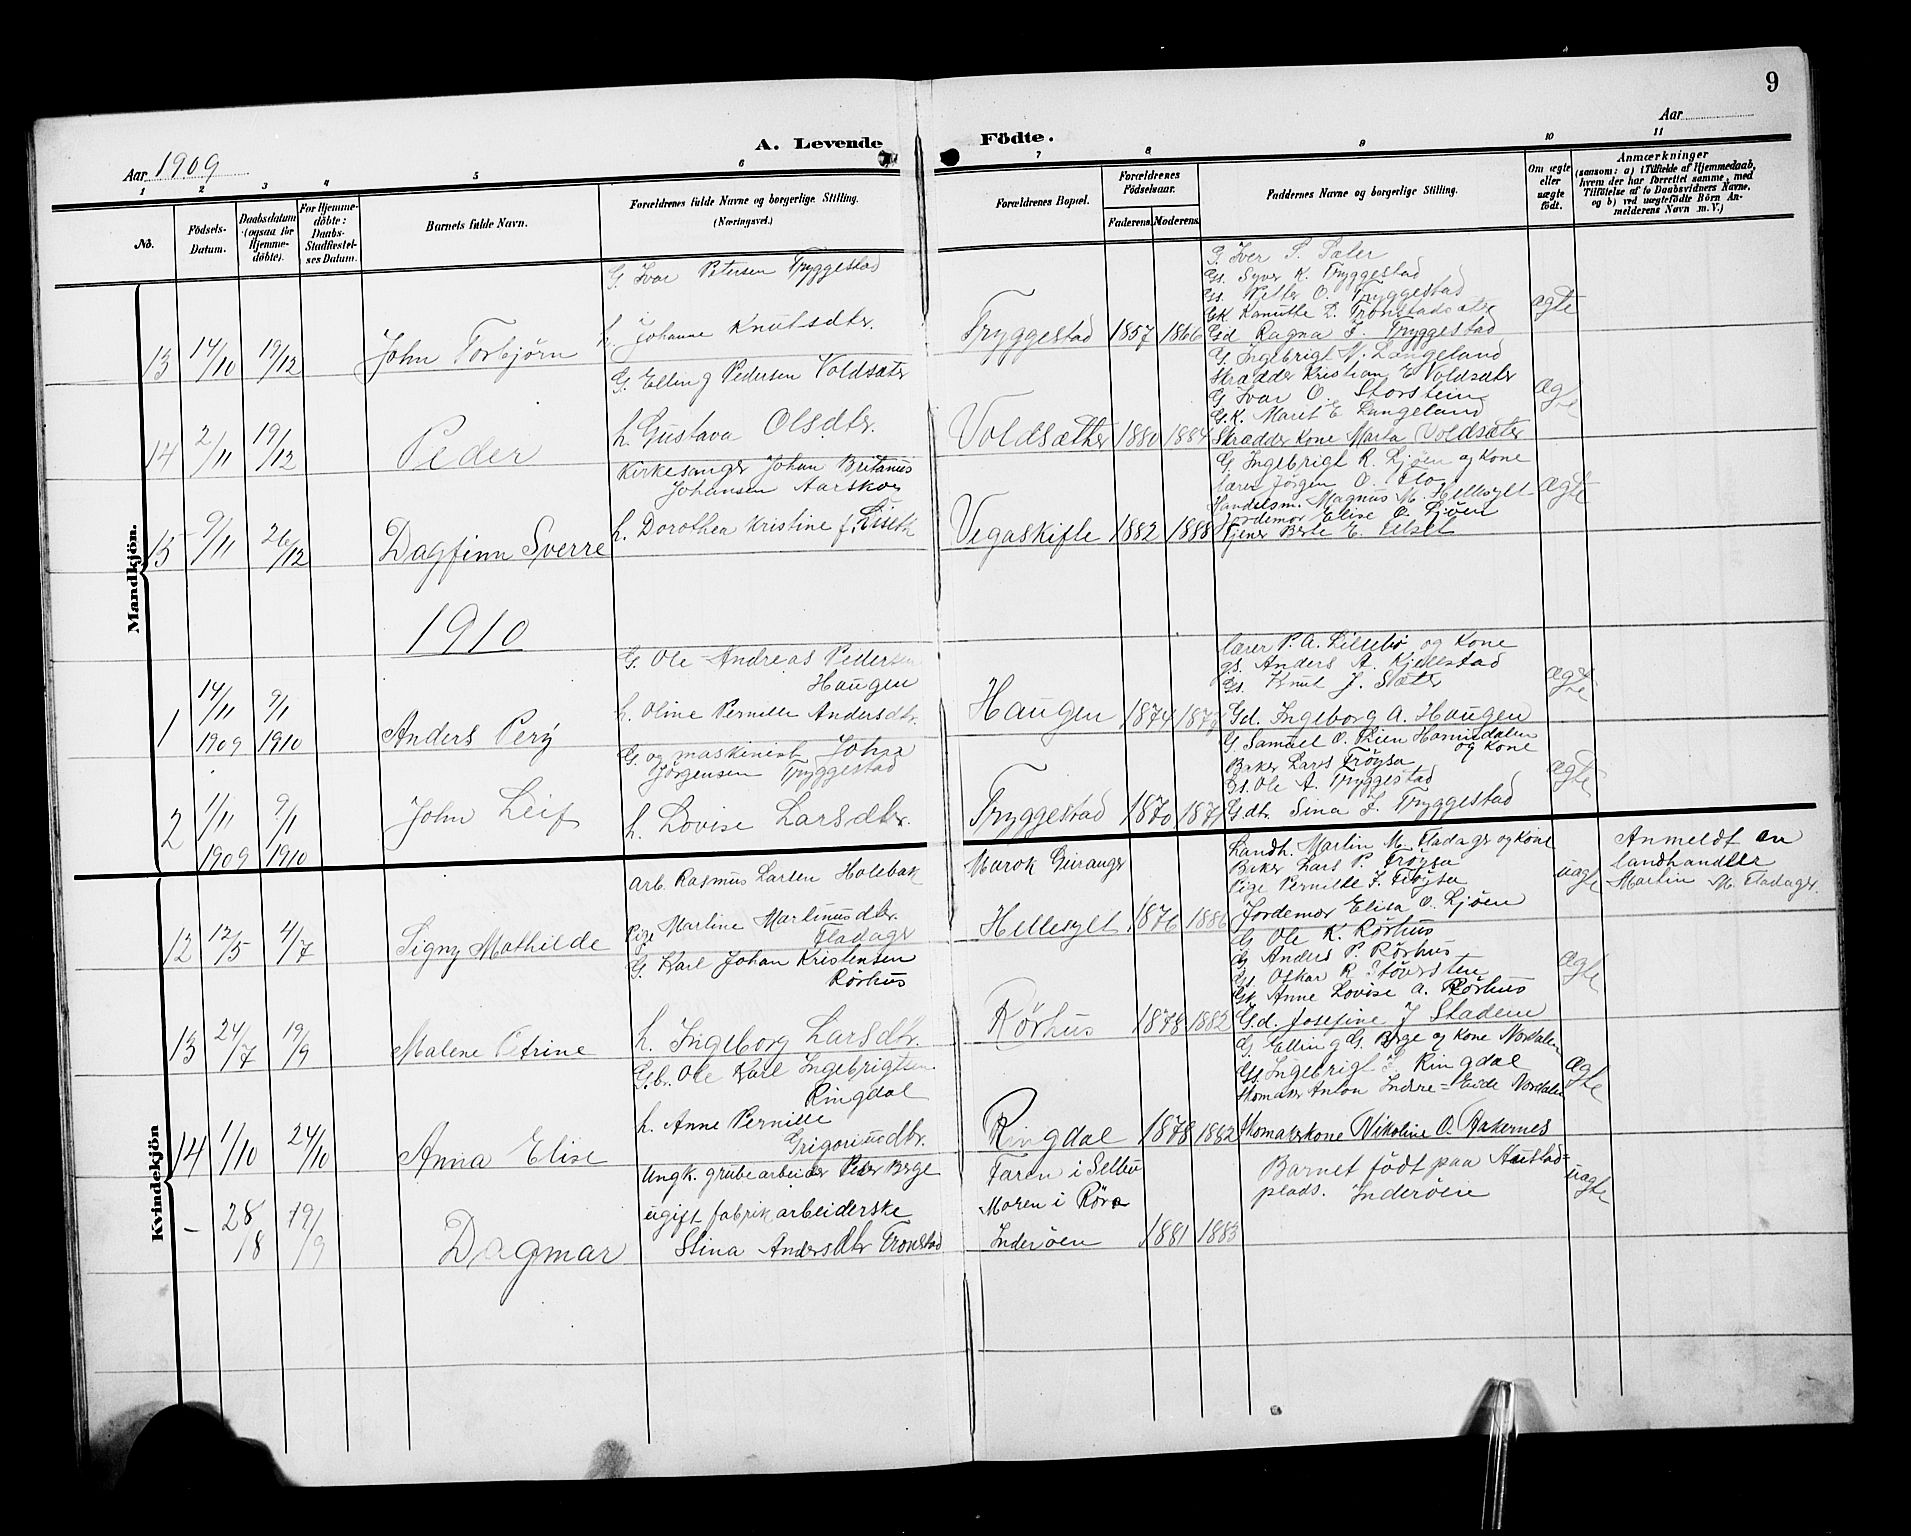 9
A. Levende Födte.
Aar 1909
Aar
1 2 3 4 5 6 7 8 9 10 11
No.
Födsels-Datum.
Daabsdatum (ogsaa for Hjemme-döbte).
For Hjemme-döbte: Daabs-Stadfæstel-ses Datum.
Barnets fulde Navn.
Forældrenes fulde Navne og borgerlige Stilling.
(Næringsvei.)
Forældrenes Bopæl.
Forældrenes Födselsaar.
Faderens. Moderens.
Faddernes Navne og borgerlige Stilling.
Om ægte eller uægte födt.
Anmærkninger
(saasom: a) i Tilfælde af Hjemmedaab,
hvem der har forrettet samme, med
Tilföielse af to Daabsvidners Navne,
og b) ved uægtefödte Börn An-
melderens Navn m. V.)
Mandkjön.
13 14/10 19/12 John Torbjørn
G. Ivar Petersen Tryggestad
h. Johanne Knutsdtr.
Tryggestad 1857 1866
G. Iver P. Saler
Gs. Syver K. Tryggestad
Gs. Petter O. Tryggestad
Gk. Kanutte L. Tronstadsæter
Gd. Ragna I. Tryggestad
ægte
14 2/11 19/12 Peder
G. Elling Pedersen Voldsæter
h. Gustava Olsdtr.
Voldsæther 1880 1884
G. Ingebrigt N. Langeland
Skrædder Kristian E. Voldsæter
G. Ivar O. Storstein
G.K. Marit E. Langeland
Skrædder Kone Marta Voldsæter
ægte
15 9/11 26/12 Dagfinn Sverre
Kirkesanger Johan Britanius
Johansen Aarskog
h. Dorothea Kristine f. Liseth
Vegaskifte 1882 1888
G. Ingebrigt R. Ljøen og Kone
lærer Jörgen O. Flo
Handelsm. Magnus M. Hellesylt
Jordemor Elise O. Ljöen
Tjener Berte E.
ægte
1910
1 14/11 1909 9/1 1910 Anders Perÿ
G. Ole Andreas Pedersen
Haugen
h. Oline Pernille Andersdtr.
Haugen 1874 1877
lærer P. A. Lillebø og Kone
gs. Anders A. Kjellstad
Gs. Knut J. Sæter
Gd. Ingeborg A. Haugen
ægte
2 1/11 1909 9/1 1910 John Leif
G. og maskinist Johan
Jörgensen Tryggestad
h. Lovise Larsdtr.
Tryggestad 1870 1871
G. Samuel O. Lien
og Kone
Baker Lars Frøysa
Gs. Ole A. Tryggestad
Gdtr. Sina J. Tryggestad
ægte
Kvindekjön
12 12/5 4/7 Signy Mathilde
arb. Rasmus Larsen Holebak
Pige Martine Martinusdtr.
Fladager
Marok Geiranger
Hellesylt 1876 1886
Landh. Martin M. Fladager og Kone
Baker Lars P. Frøysa
Pige Pernille J. Frøysa
Jordemor Elisa O. Ljøen
uægte
Anmeldt en
landhandler
Martin M. Fladager.
13 24/7 19/9 Malene Petrine
G. Karl Johan Kristensen
Rørhus
h. Ingeborg Larsdtr.
Rørhus 1878 1882
G. Ole K. Rørhus
G. Anders P. Rørhus
Gs. Oskar R.
Gk. Anne Lovise A. Rørhus
Gd. Josefine J. Stadem
ægte
14 1/10 24/10 Anna Elise
G.b. Ole Karl Ingebrigtsen
Ringdal
h. Anne Pernille
Grigoriusdtr.
Ringdal 1878 1882
G. Elling G. Berge og Kone Nordalen
Gs. Ingebrigt I. Ringdal
Skomaker Anton Indre-Eide Nordalen
Skomakerkone Nikoline O. Aakernes
ægte
- 28/8 19/9 Dagmar
Ungk. grubearbeider Peder Berge
ugift fabrikarbeiderske
Stina Andersdtr Tronstad
Faren i Selbu
Moren i Röra
Inderøen 1881 1883
Barnet født paa
plads. Inderøen
uægte